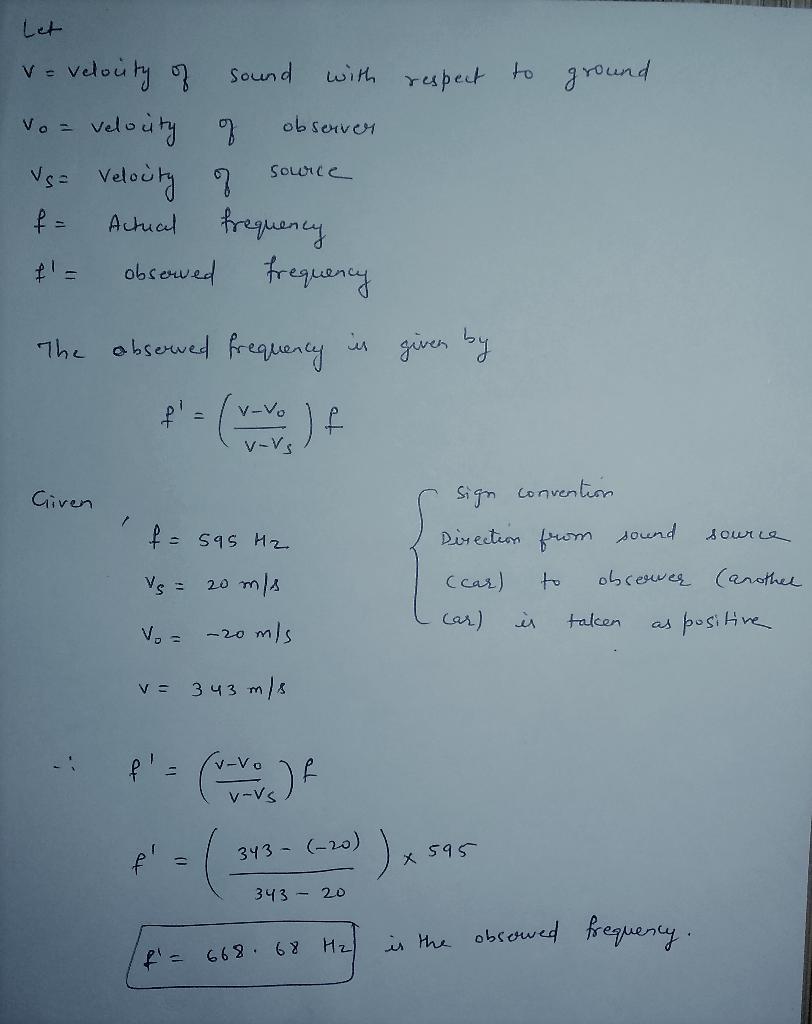 Let
v = velocity of sound with respect to ground
vo = velocity of observer
vs = velocity of source
f = Actual frequency
f' = observed frequency
The observed frequency is given by
f' = (v-vo / v-vs) f
Given,
f = 595 Hz
vs = 20 m/s
vo = -20 m/s
v = 343 m/s
Sign convention
Direction from sound source
(car) to observer (another
car) is taken as positive
∴ f' = (v-vo / v-vs) f
f' = (343 - (-20) / 343 - 20) × 595
f' = 668.68 Hz is the observed frequency.